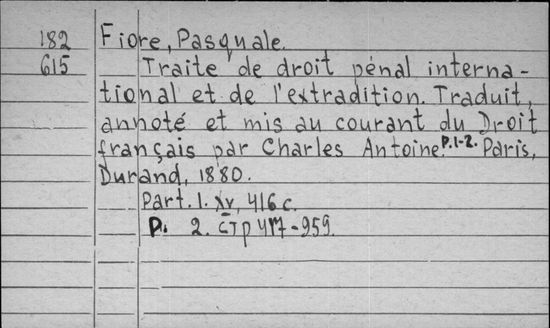 182 Fiore, Pasquale.
615 Traite de droit pénal interna-
tional et de l'extradition. Traduit,
annoté et mis au courant du Droit
français par Charles Antoine. P.1-2. Paris,
Durand, 1880.
Part. 1. XV, 416 c.
P. 2. стр 417-959.